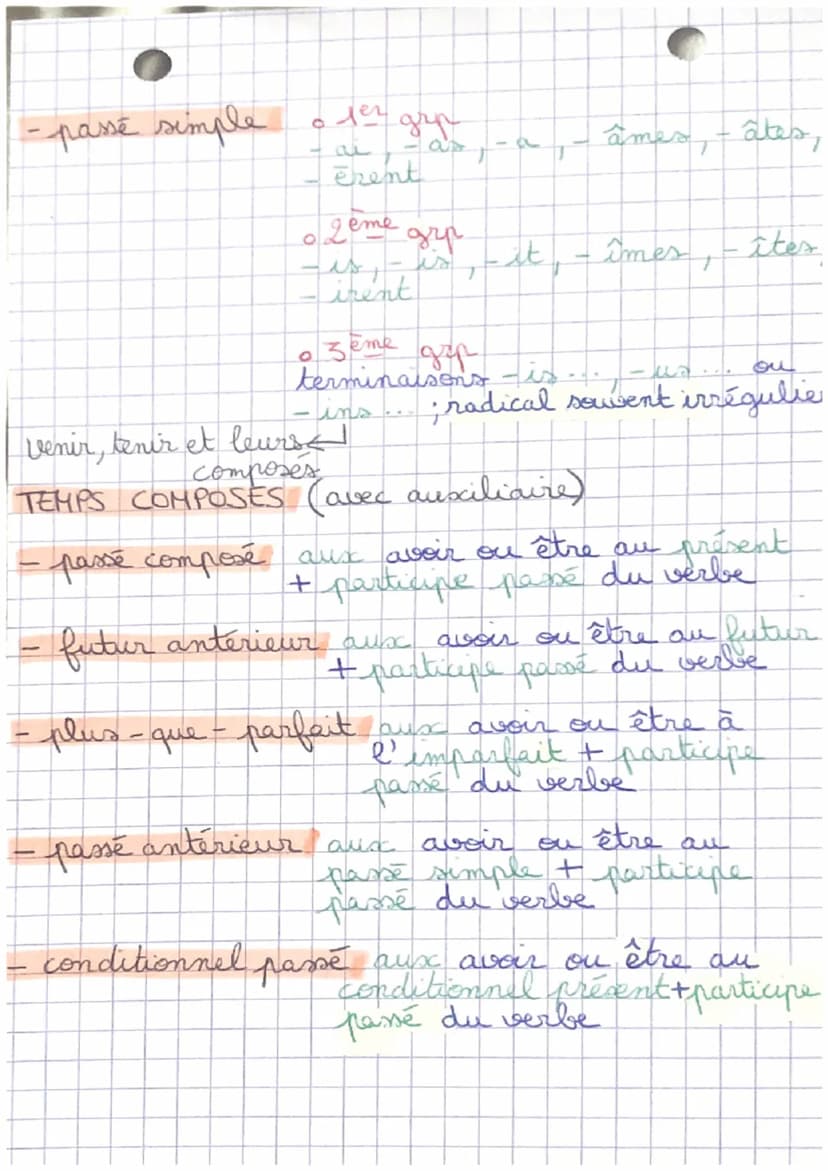 - passé simple
o 1er grp
- ai, - as, - a, - âmes, - âtes,
- èrent
o 2ème grp
- is, - is, - it, - îmes, - îtes,
- irent
o 3ème grp
terminaisons - is ..., - us ... ou
- ins ... ; radical souvent irrégulie
venir, tenir et leurs
composés
TEMPS COMPOSÉS (avec auxiliaire)
- passé composé aux avoir ou être au présent
+ participe passé du verbe
- futur antérieur aux avoir ou être au futur
+ participe passé du verbe
- plus-que-parfait aux avoir ou être à
l'imparfait + participe
passé du verbe
- passé antérieur aux avoir ou être au
passé simple + participe
passé du verbe
- conditionnel passé aux avoir ou être au
conditionnel présent + participe
passé du verbe